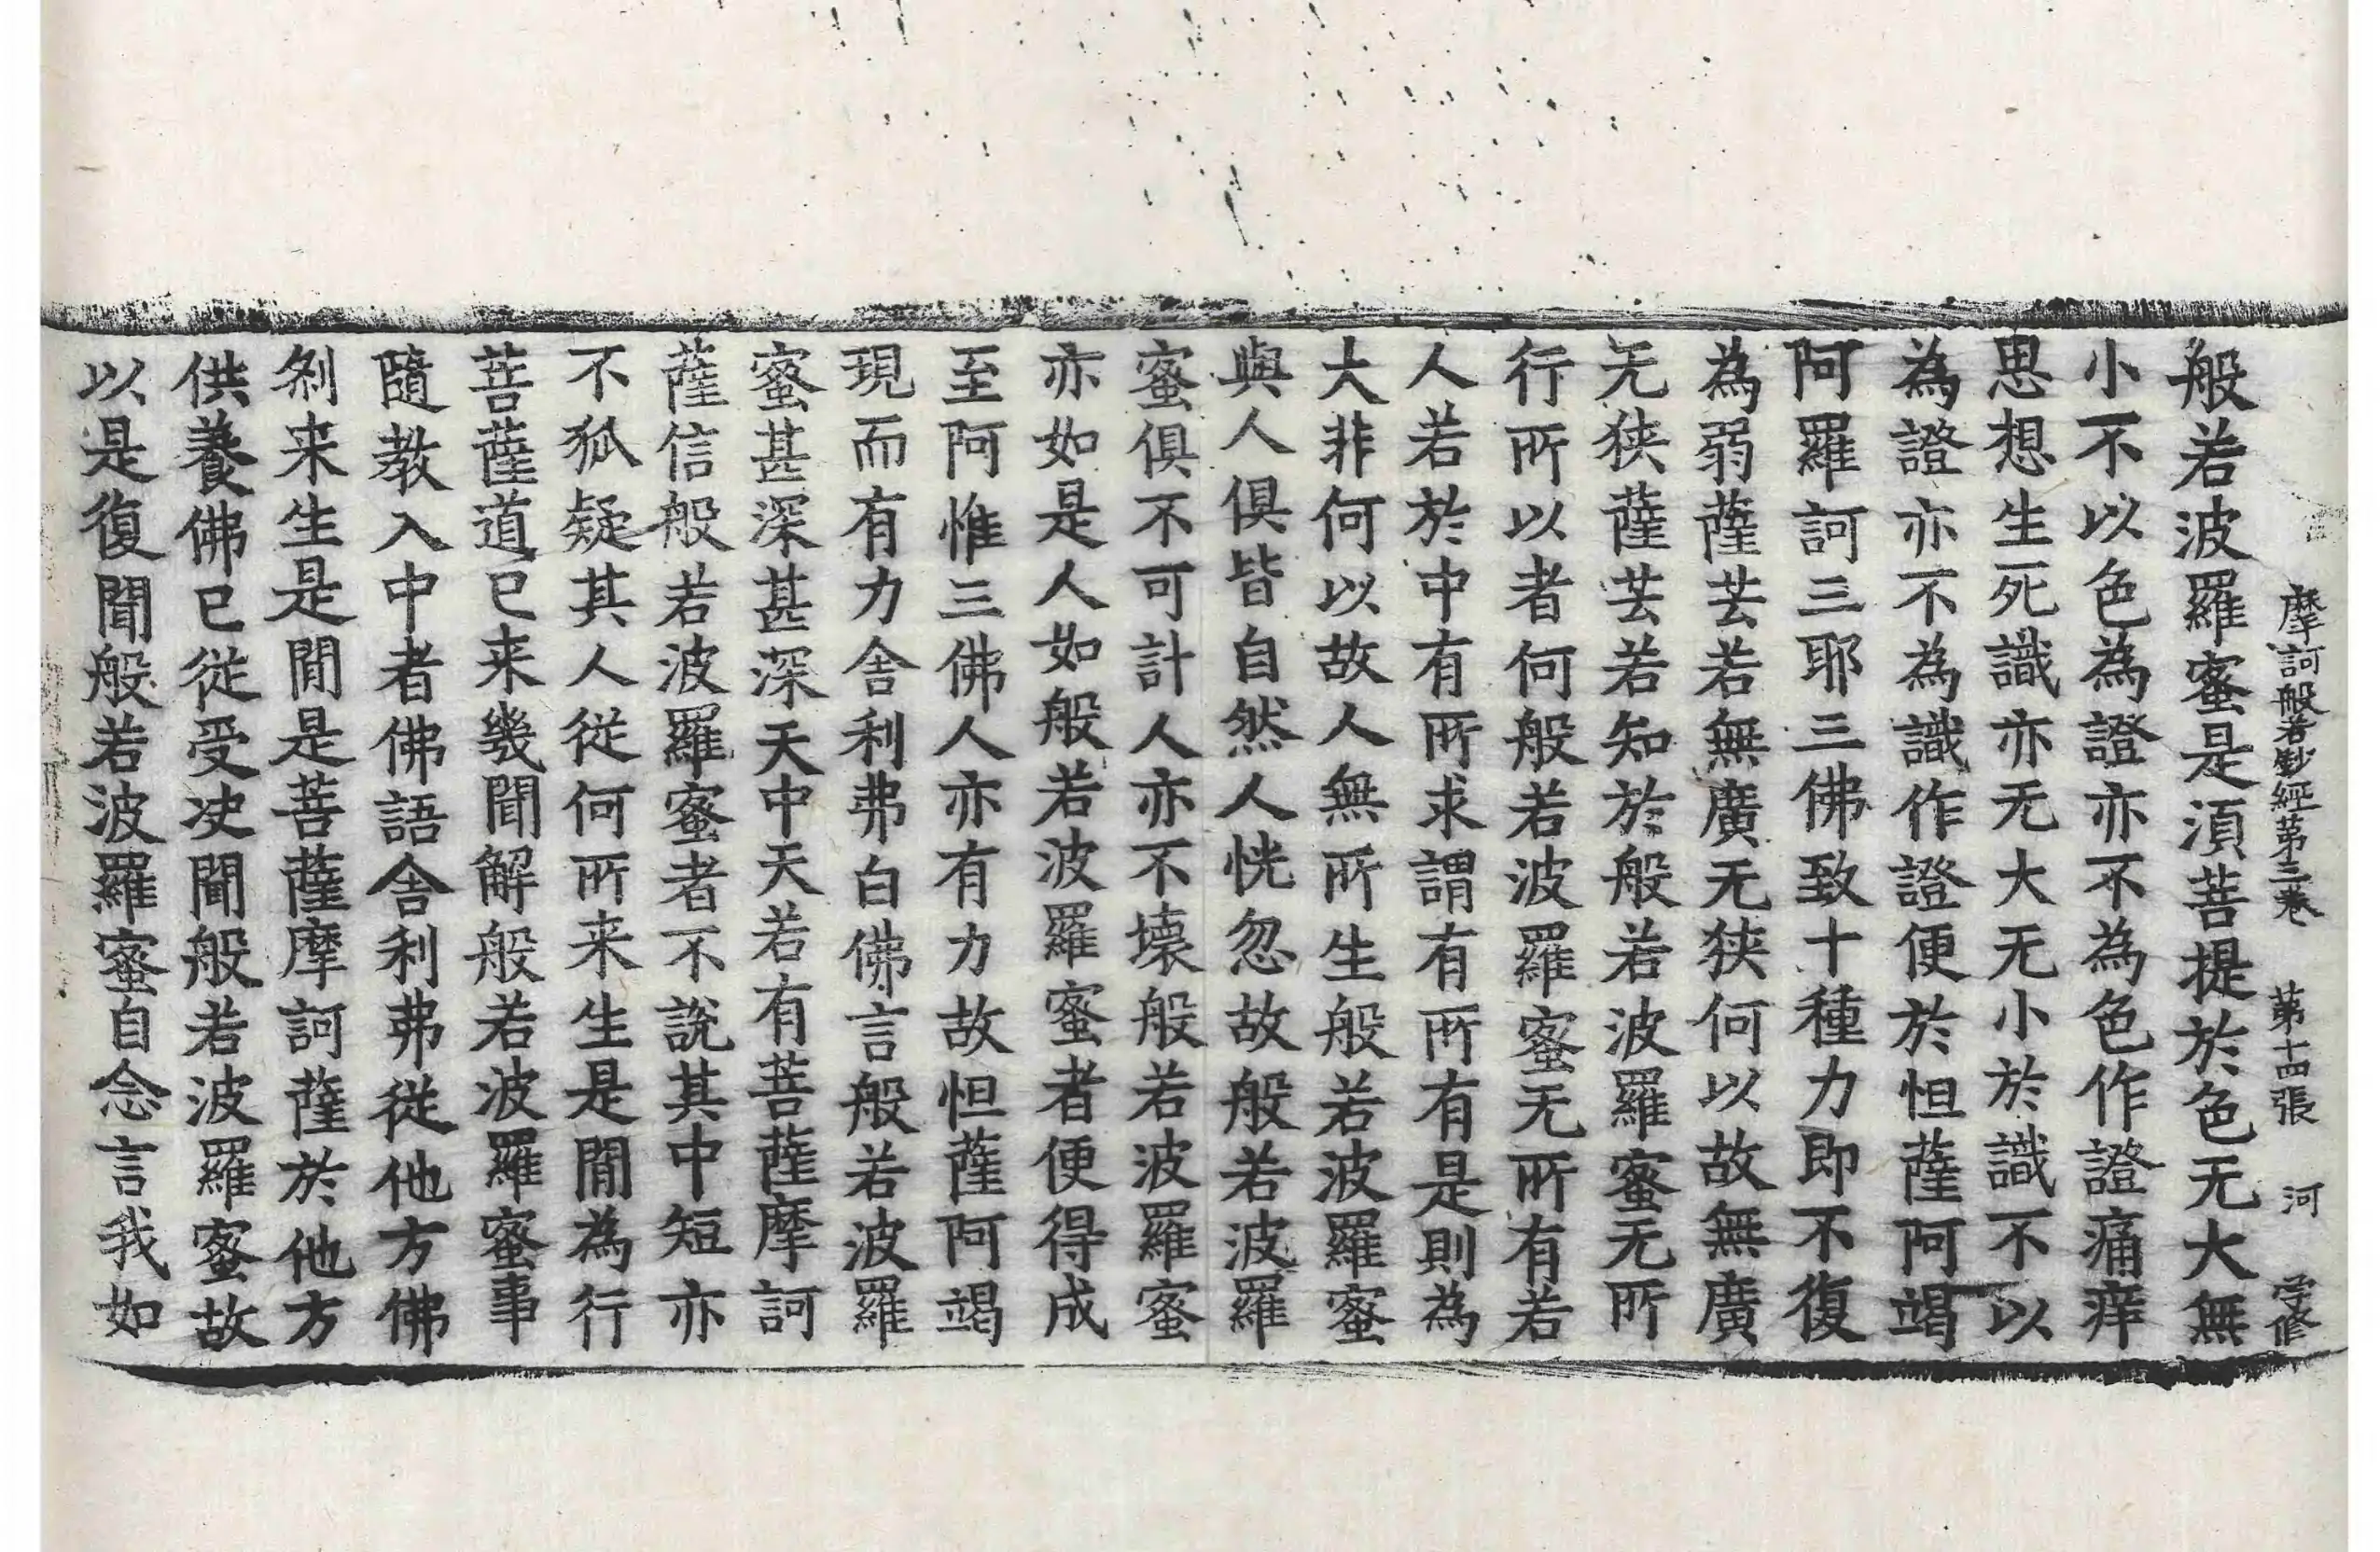 摩訶般若鈔經第三卷　第十四張　河　学修
般若波羅蜜是湏菩提於色无大無
小不以色為證亦不為色作證痛痒
思想生死識亦无大无小於識不以
為證亦不為識作證便於怛薩阿竭
阿羅訶三耶三佛致十種力即不復
為弱薩芸若無廣无狹何以故無廣
无狹薩芸若知於般若波羅蜜无所
行所以者何般若波羅蜜无所有若
人若於中有所求謂有所有是則為
大非何以故人無所生般若波羅蜜
與人俱皆自然人恍忽故般若波羅
蜜俱不可計人亦不壞般若波羅蜜
亦如是人如般若波羅蜜者便得成
至阿惟三佛人亦有力故怛薩阿竭
現而有力舍利弗白佛言般若波羅
蜜甚深甚深天中天若有菩薩摩訶
薩信般若波羅蜜者不說其中短亦
不狐疑其人從何所来生是間為行
菩薩道已来幾聞解般若波羅蜜事
隨教入中者佛語舍利弗從他方佛
刹来生是間是菩薩摩訶薩於他方
供養佛已從受决聞般若波羅蜜故
以是復聞般若波羅蜜自念言我如